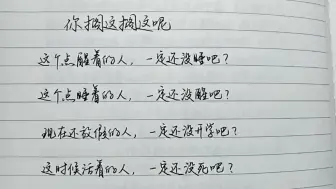 你搁这搁这呢
这个点醒着的人，一定还没睡吧？
这个点睡着的人，一定还没醒吧？
现在还放假的人，一定还没开学吧？
这时候活着的人，一定还没死吧？